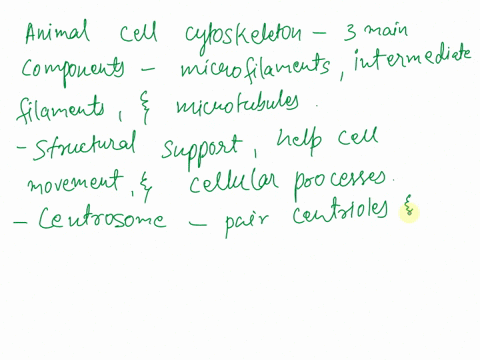 Animal cell cytoskeleton - 3 main
components - microfilaments, intermediate
filaments, & microtubules.
- Structural support, help cell
movement, & cellular processes.
- Centrosome - pair centrioles &